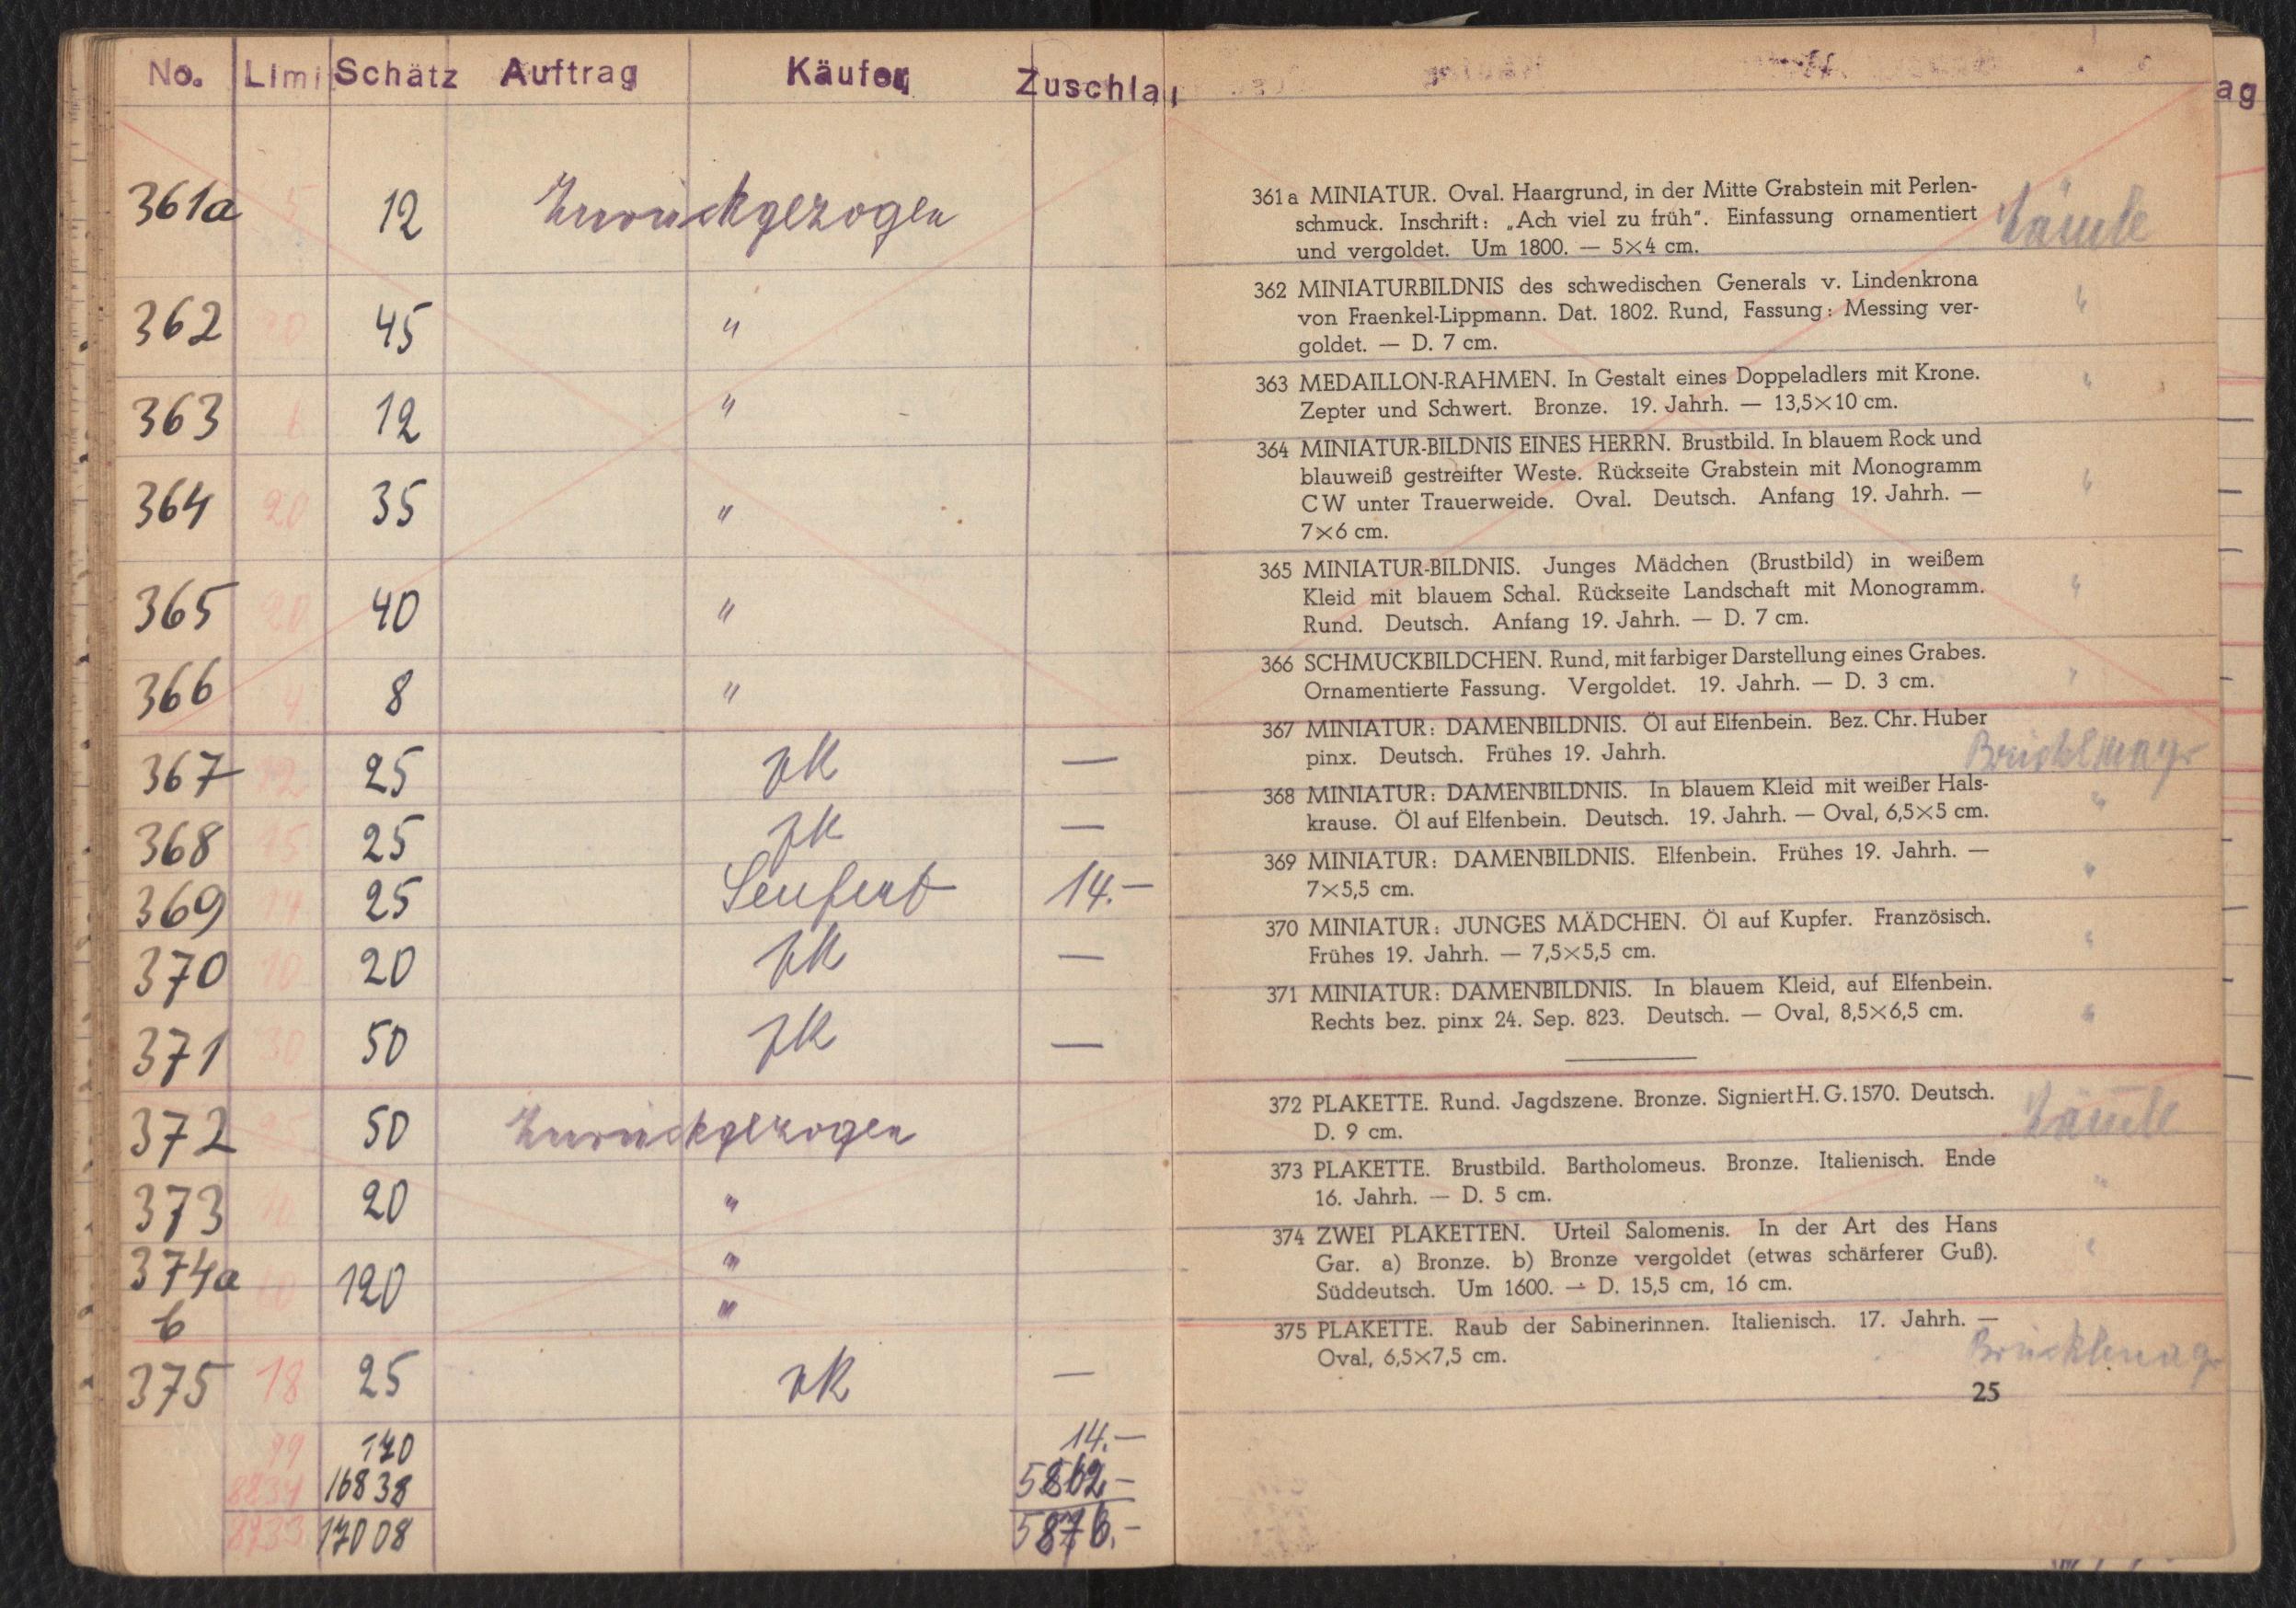 No. Limi Schätz Auftrag Käufer Zuschlag
361a 5 12 Zurückgezogen
362 20 45 "
363 6 12 "
364 20 35 "
365 20 40 "
366 4 8 "
367 12 25 zk —
368 15 25 zk —
369 14 25 Seufert 14.—
370 10 20 zk —
371 30 50 zk —
372 25 50 Zurückgezogen
373 20 "
374a 120 "
b "
375 18 25 zk —
99 170 14.—
8234 16838 5862.—
8333 17008 5876.—
361 a MINIATUR. Oval. Haargrund, in der Mitte Grabstein mit Perlen-
schmuck. Inschrift: „Ach viel zu früh“. Einfassung ornamentiert
und vergoldet. Um 1800. — 5×4 cm.
362 MINIATURBILDNIS des schwedischen Generals v. Lindenkrona "
von Fraenkel-Lippmann. Dat. 1802. Rund, Fassung: Messing ver-
goldet. — D. 7 cm.
363 MEDAILLON-RAHMEN. In Gestalt eines Doppeladlers mit Krone. "
Zepter und Schwert. Bronze. 19. Jahrh. — 13,5×10 cm.
364 MINIATUR-BILDNIS EINES HERRN. Brustbild. In blauem Rock und
blauweiß gestreifter Weste. Rückseite Grabstein mit Monogramm "
CW unter Trauerweide. Oval. Deutsch. Anfang 19. Jahrh. —
7×6 cm.
365 MINIATUR-BILDNIS. Junges Mädchen (Brustbild) in weißem
Kleid mit blauem Schal. Rückseite Landschaft mit Monogramm. "
Rund. Deutsch. Anfang 19. Jahrh. — D. 7 cm.
366 SCHMUCKBILDCHEN. Rund, mit farbiger Darstellung eines Grabes. "
Ornamentierte Fassung. Vergoldet. 19. Jahrh. — D. 3 cm.
367 MINIATUR: DAMENBILDNIS. Öl auf Elfenbein. Bez. Chr. Huber
pinx. Deutsch. Frühes 19. Jahrh.
368 MINIATUR: DAMENBILDNIS. In blauem Kleid mit weißer Hals- "
krause. Öl auf Elfenbein. Deutsch. 19. Jahrh. — Oval, 6,5×5 cm.
369 MINIATUR: DAMENBILDNIS. Elfenbein. Frühes 19. Jahrh. — "
7×5,5 cm.
370 MINIATUR: JUNGES MÄDCHEN. Öl auf Kupfer. Französisch. "
Frühes 19. Jahrh. — 7,5×5,5 cm.
371 MINIATUR: DAMENBILDNIS. In blauem Kleid, auf Elfenbein. "
Rechts bez. pinx 24. Sep. 823. Deutsch. — Oval, 8,5×6,5 cm.
372 PLAKETTE. Rund. Jagdszene. Bronze. Signiert H. G. 1570. Deutsch.
D. 9 cm.
373 PLAKETTE. Brustbild. Bartholomeus. Bronze. Italienisch. Ende "
16. Jahrh. — D. 5 cm.
374 ZWEI PLAKETTEN. Urteil Salomenis. In der Art des Hans "
Gar. a) Bronze. b) Bronze vergoldet (etwas schärferer Guß).
Süddeutsch. Um 1600. — D. 15,5 cm, 16 cm.
375 PLAKETTE. Raub der Sabinerinnen. Italienisch. 17. Jahrh. —
Oval, 6,5×7,5 cm.
25
ag